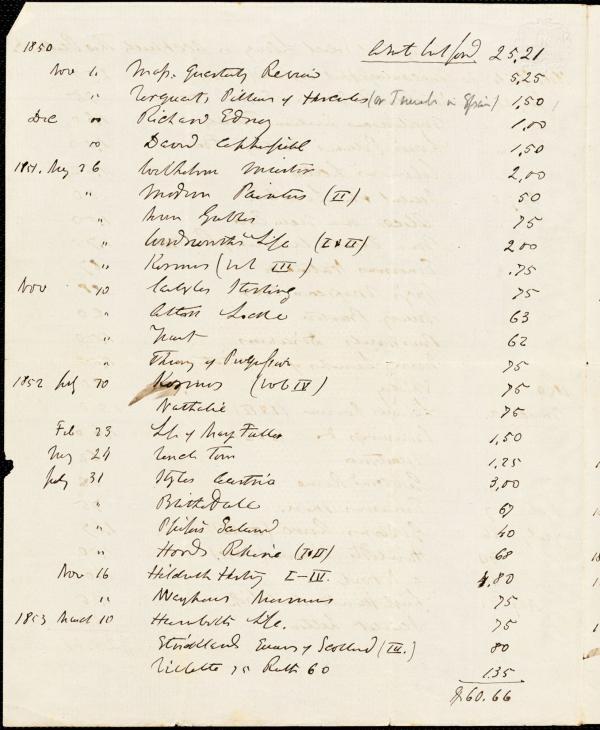 1850
Amt brt ford. 25.21
Nov 1. Mass. Quarterly Review 5,25
" Urquart's Pillars of Hercules (or Travels in Spain) 1,50
Dec " Richard Edney 1,00
" David Copperfield 1,50
1851. May 26 Wilhelm Meister 2,00
" Modern Painters (II) 50
" 75
" Wordsworth's Life (I & II) 200
" Kosmos (vol III) .75
Nov 10 Carlyle's Sterling 75
" Alton Locke 63
" Yeast 62
" Theory of 75
1852 70 Kosmos (vol IV) 75
Nathalie 75
Feb 23 Life of Marg Fuller 1,50
24 Uncle Tom 1,25
July 31 Styles Austria 3,00
" Blithedale 67
" 40
" Hood's Rhine (I & II) 68
Nov 16 Hildreth History I–IV. 4.80
" Mayhew's Mormons 75
1853 March 10 Humboldt's Life. 75
Strickland's Queens of Scotland (III.) 80
Villette 75 Ruth 60 135
$60.66